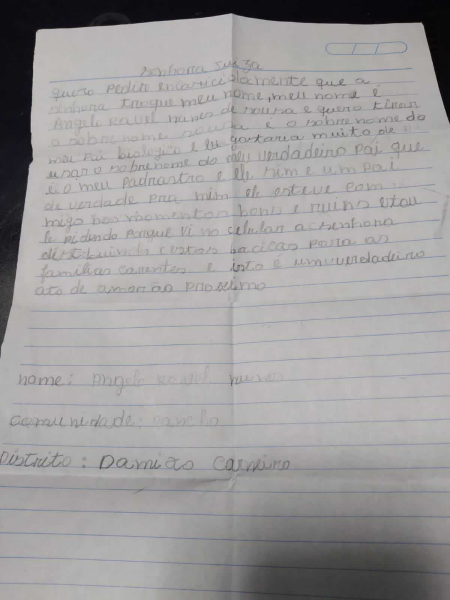 senhora Juiza
quero Pedir encaricidamente que a
senhora troque meu nome, meu nome e
Angelo Rauel nunes de sousa e quero tirar
o sobre nome sousa e o sobre nome do
meu pai biologico e eu gostaria muito de
usar o sobre nome do meu verdadeiro pai que
é o meu Padrastro e ele sim e um pai
de verdade pra mim ele esteve com
migo nos momentos bons e ruins estou
le pidindo porque vi no celular a senhora
distribuindo cestas bacicas para as
familias carentes e isto é um verdadeiro
ato de amor ao proscimo
nome: Angelo Rauel nunes
comunidade:
Distrito: Damião Carneiro